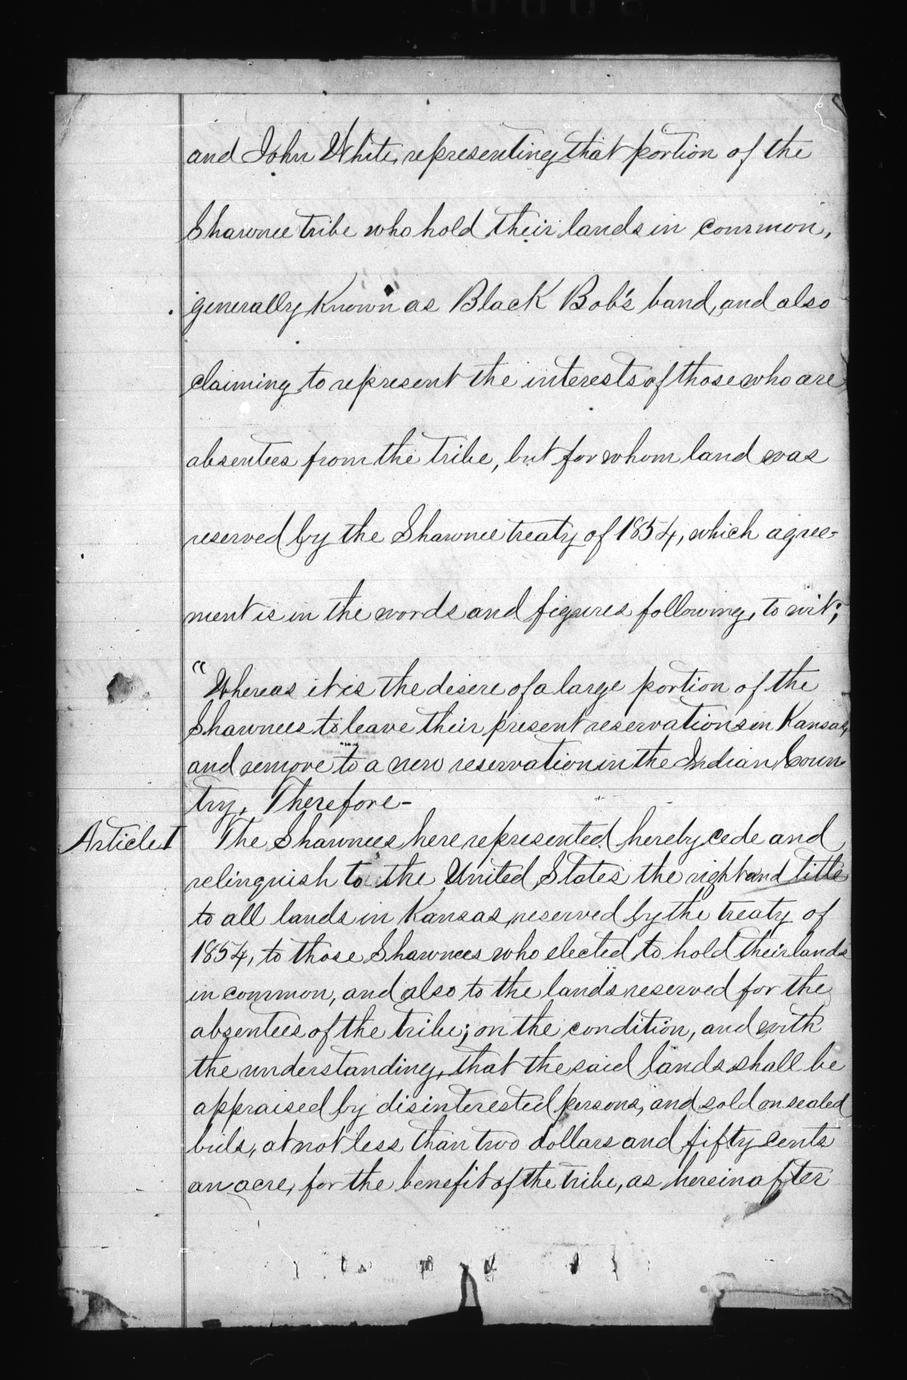 and John White, representing that portion of the
Shawnee tribe who hold their lands in common,
generally known as Black Bob's band, and also
claiming to represent the interests of those who are
absentees from the tribe, but for whom land was
reserved by the Shawnee treaty of 1854, which agree-
ment is in the words and figures following, to wit;
"Whereas it is the desire of a large portion of the
Shawnees to leave their present reservations in Kansas,
and remove to a new reservation in the Indian Coun-
try, Therefore-
Article I The Shawnees here represented, hereby cede and
relinquish to the United States the right and title
to all lands in Kansas, reserved by the treaty of
1854, to those Shawnees who elected to hold their lands
in common, and also to the lands reserved for the
absentees of the tribe; on the condition, and with
the understanding, that the said lands shall be
appraised by disinterested persons, and sold on sealed
bids, at not less than two dollars and fifty cents
an acre, for the benefit of the tribe, as hereinafter